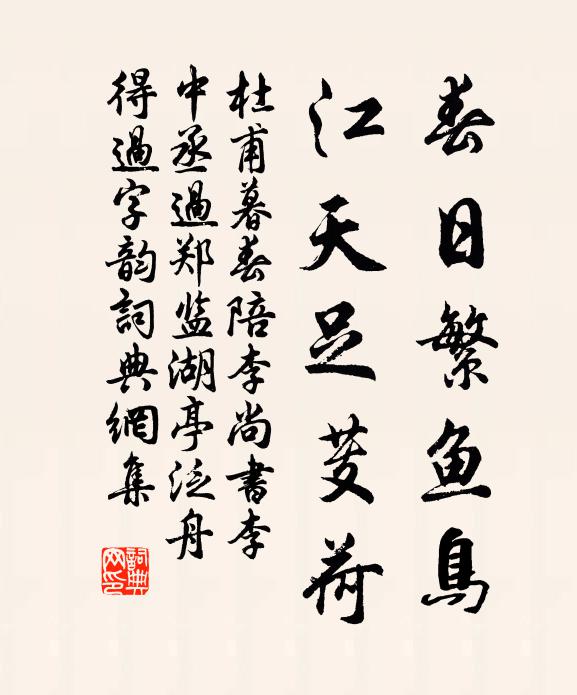 春日繁鱼鸟
江天足芰荷
杜甫暮春陪李尚书李
中丞過郑监湖亭泛舟
得過字韵詞典網集
詞典网印